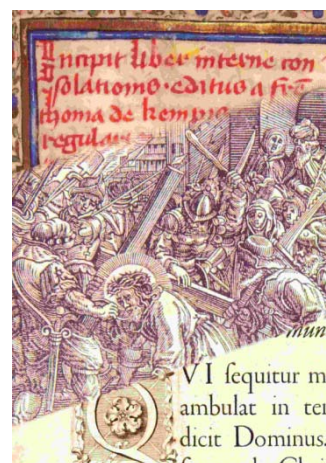 Incipit liber interne con
solationis · editus a fr̄e
thoma de kempis
regulari
mun
QVI ſequitur m
ambulat in te
dicit Dominus.